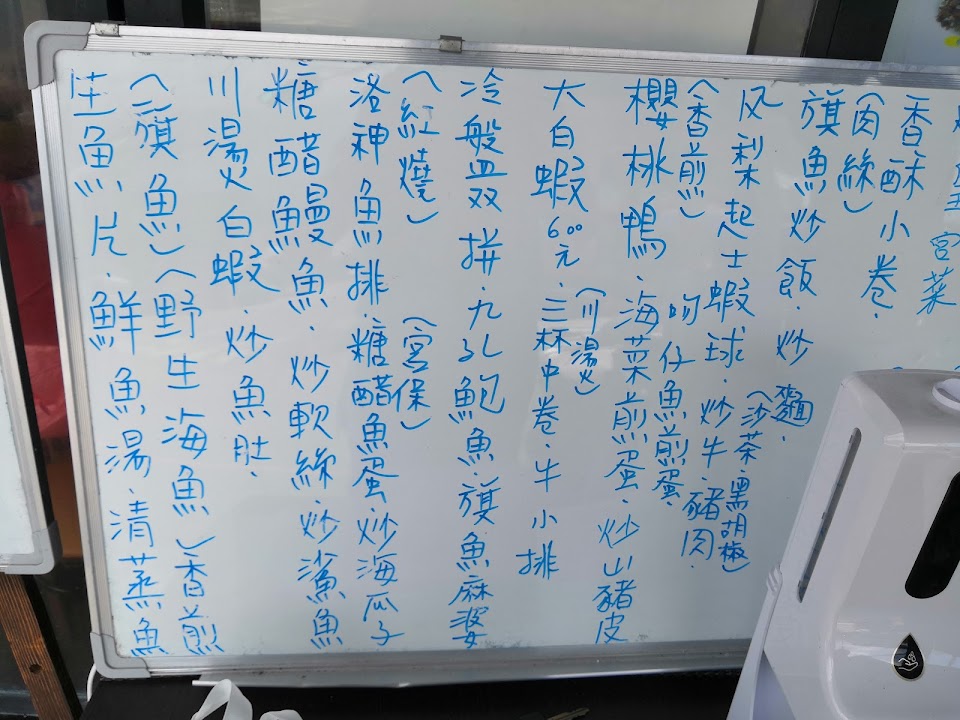 生魚片.鮮魚湯.清蒸魚
(旗魚)(野生海魚)香煎
川湯白蝦.炒魚肚.
糖醋鰻魚.炒軟絲.炒鯊魚
洛神魚排.糖醋魚蛋.炒海瓜子
(紅燒) (宮保)
冷盤双拼.九孔鮑魚.旗魚麻婆
大白蝦600元.三杯中卷.牛小排
(川湯)
櫻桃鴨.海菜煎蛋.炒山豬皮
(香煎) 吻仔魚煎蛋.
风梨起士蝦球.炒牛.豬肉.
(沙茶.黑胡椒)
旗魚炒飯.炒麵.
(肉絲)
香酥小卷.
宮菜